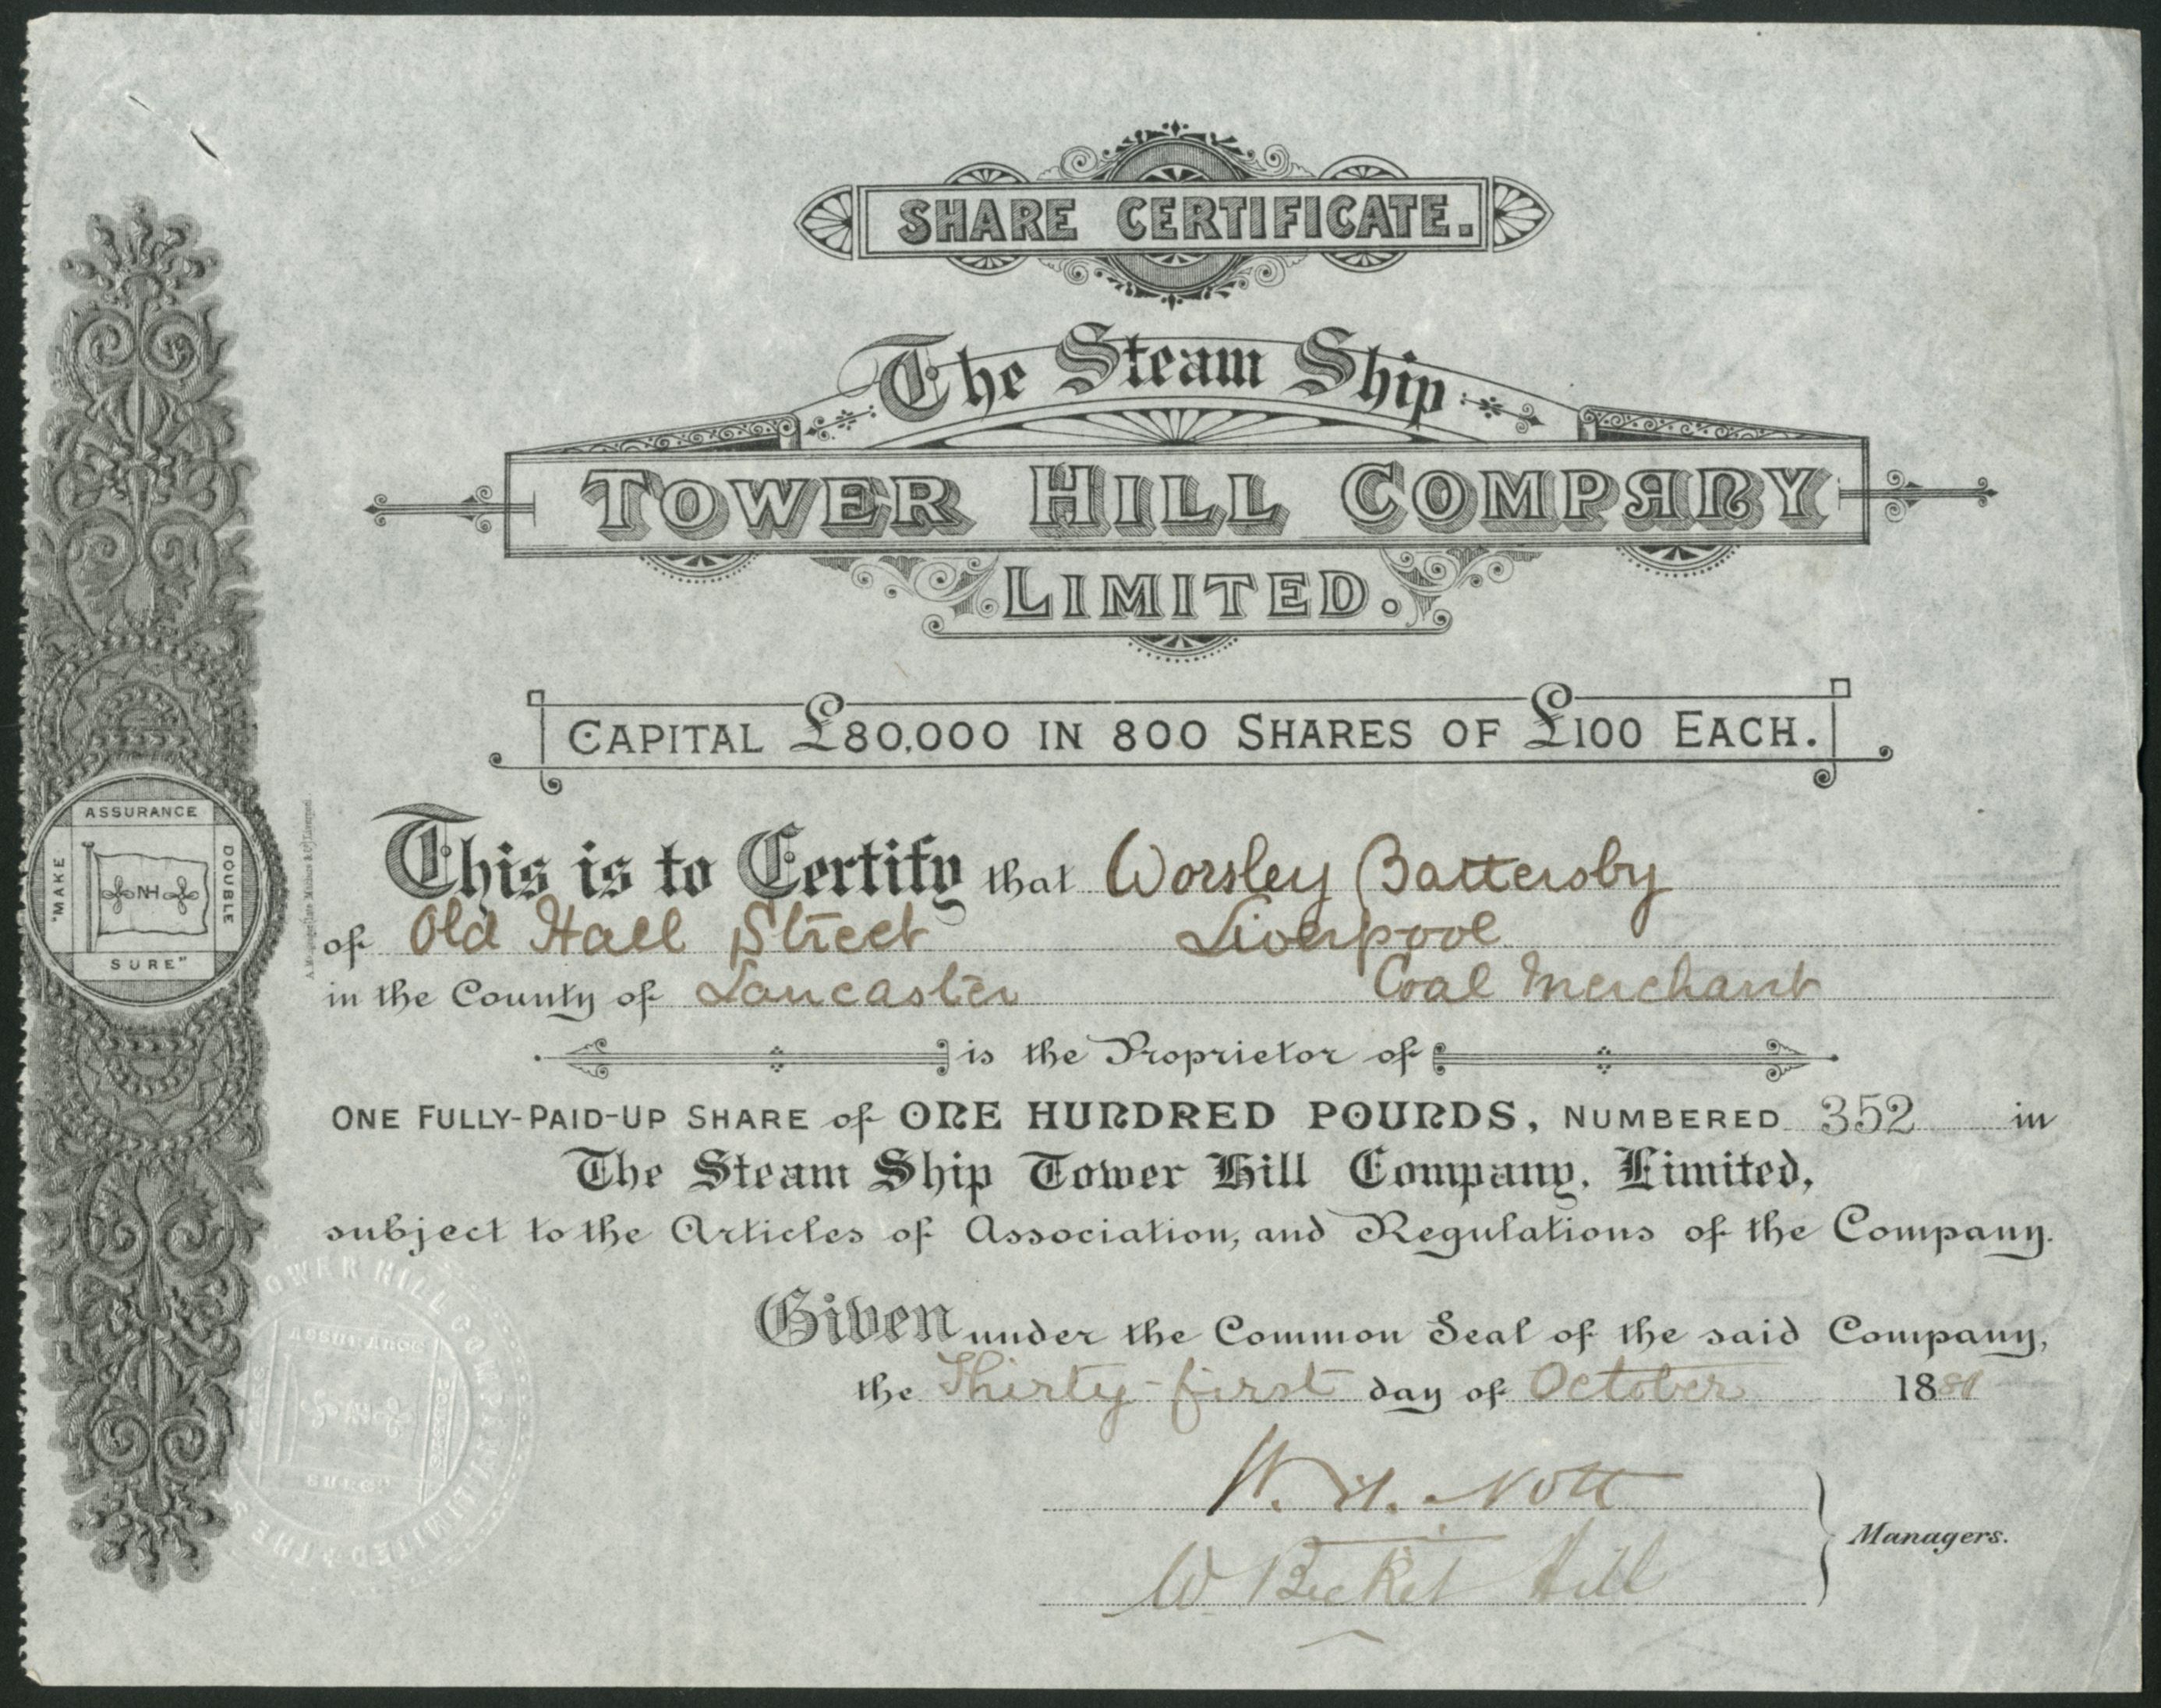 SHARE CERTIFICATE.
The Steam Ship
TOWER HILL COMPANY
LIMITED.
CAPITAL £80,000 IN 800 SHARES OF £100 EACH.
ASSURANCE
"MAKE
DOUBLE
NH
SURE"
This is to Certify that Worsley Battersby
of Old Hall Street Liverpool
in the County of Lancaster Coal Merchant
is the Proprietor of
ONE FULLY-PAID-UP SHARE of ONE HUNDRED POUNDS, NUMBERED 352 in
The Steam Ship Tower Hill Company, Limited,
subject to the Articles of Association, and Regulations of the Company.
Given under the Common Seal of the said Company,
the Thirty-first day of October 188
W. H. Nott
W. Becket Hill
Managers.
TOWER HILL COMPANY LIMITED THE S
ASSURANCE
DOUBLE
SURE"